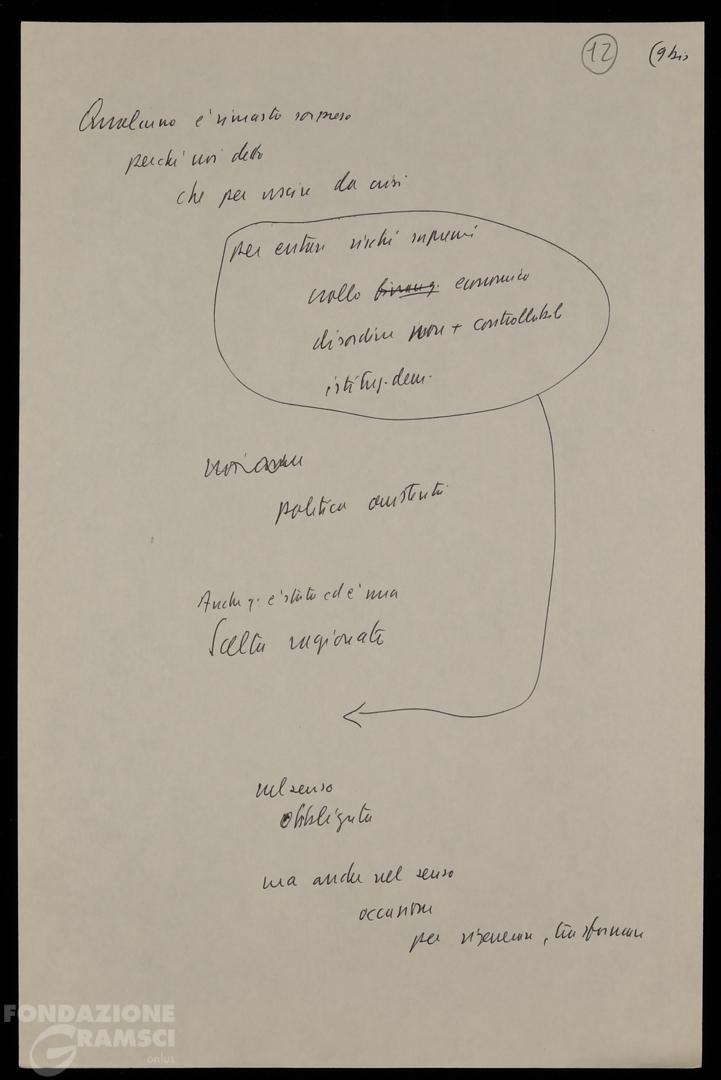 12 (9 bis
Qualcuno è rimasto sorpreso
perché noi detto
che per uscire da crisi
per evitare rischi supremi
crollo finanz. economico
disordine non + controllabile
istituz. dem.
politica austerità
Anche q. è stata ed è una
Scelta ragionata
nel senso
obbligata
ma anche nel senso
occasione
per rigenerare, trasformare
FONDAZIONE
GRAMSCI
onlus